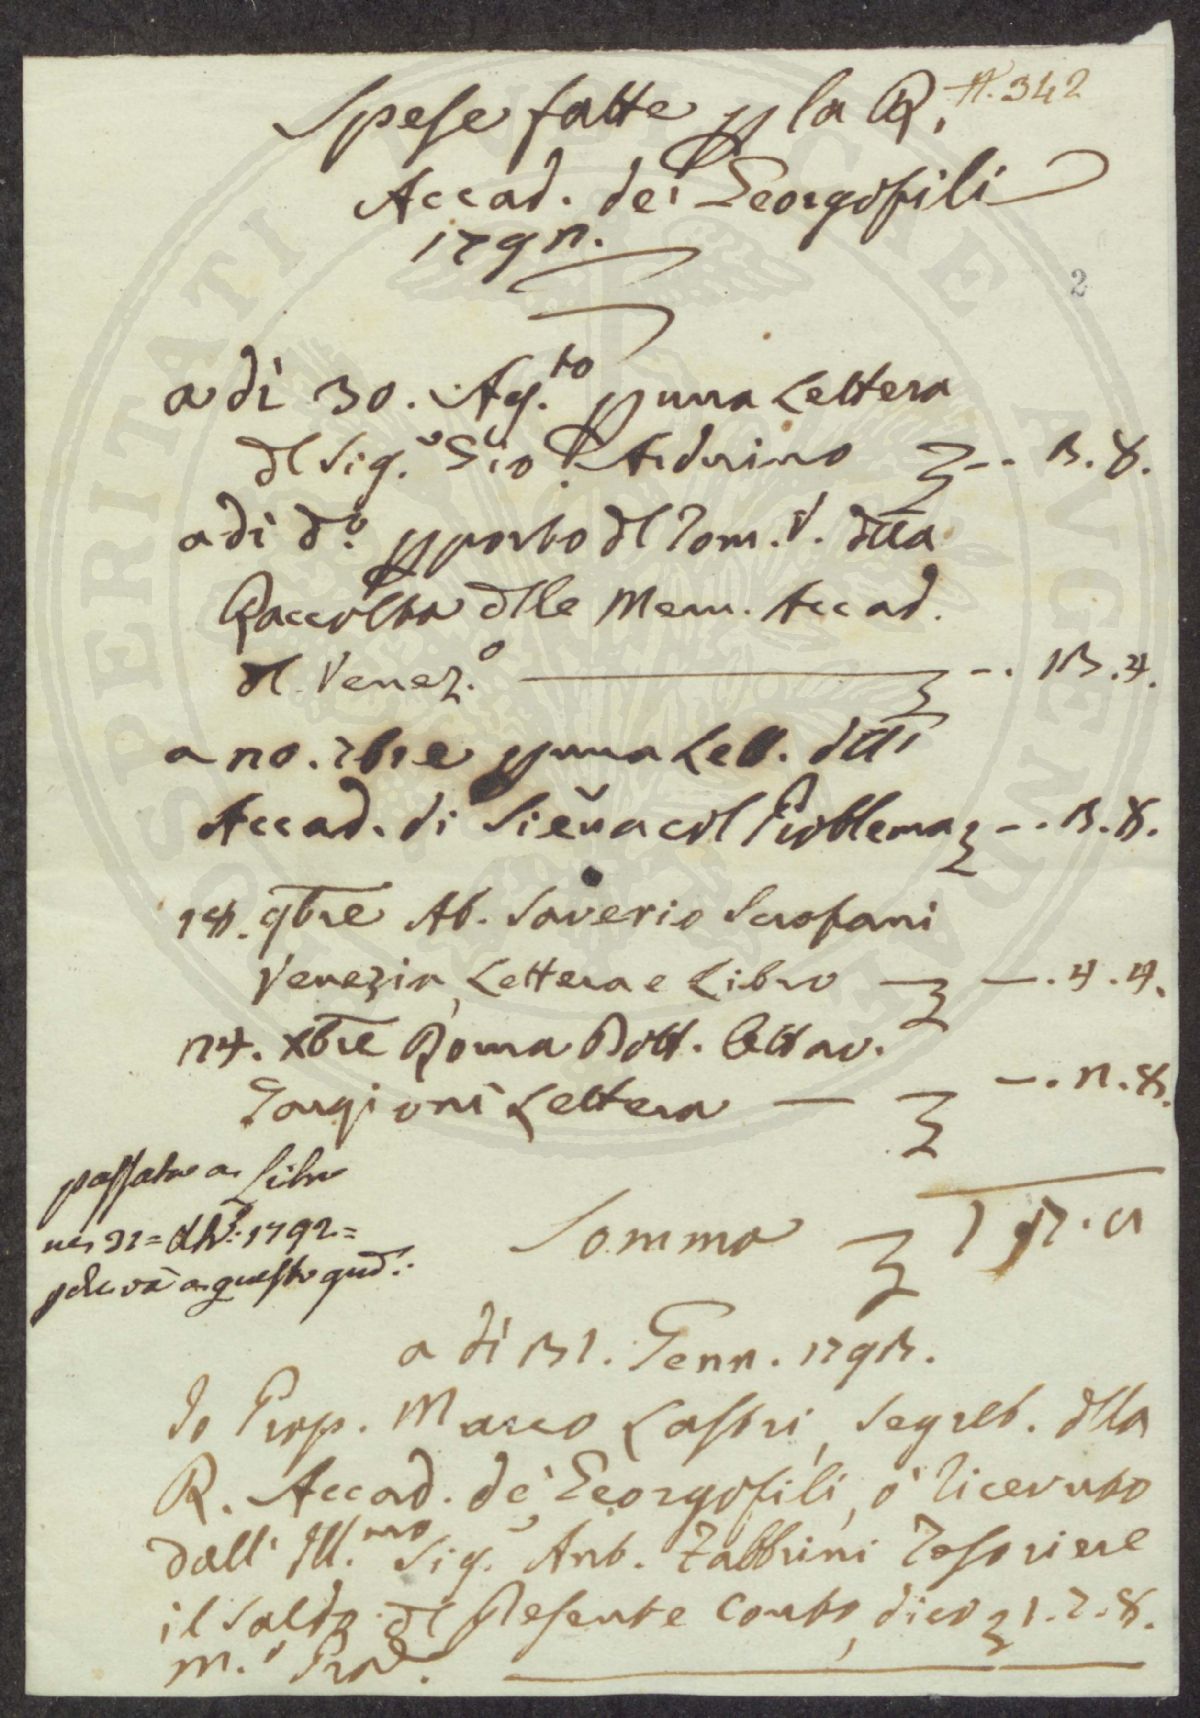 N. 342
Spese fatte p la R.
Accad. dei Georgofili
1792.
2
a dì 30. Ag.to p una Lettera
dl Sig.r Gio. Arduino — 3. 8.
a dì d.o p porto dl Tom. V. dlla
Raccolta dlle Mem. Accad.
dl Venez.o — 13. 4.
a 20. 7bre p una Lett. dlli
Accad. di Siena col Problema — 3. 8.
14. 9bre Ab. Saverio Scrofani
Venezia, Lettera e Libro — 4. 4.
24. Xbre Roma Dott. Ottav.
Targioni Lettera — 2. 8.
passata a Libro
1792
va a questo
Somma
a dì 31. Genn. 1793.
Io Prop. Marco Lastri, Segret. dlla
R. Accad. de' Georgofili, ò ricevuto
dall' Ill.mo Sig.r Ant. Fabbrini Tesoriere
il saldo dl presente Conto, dico 1. 7. 8.
m.o Pro.a
SPERITATI PUBLICAE AUGENDAE